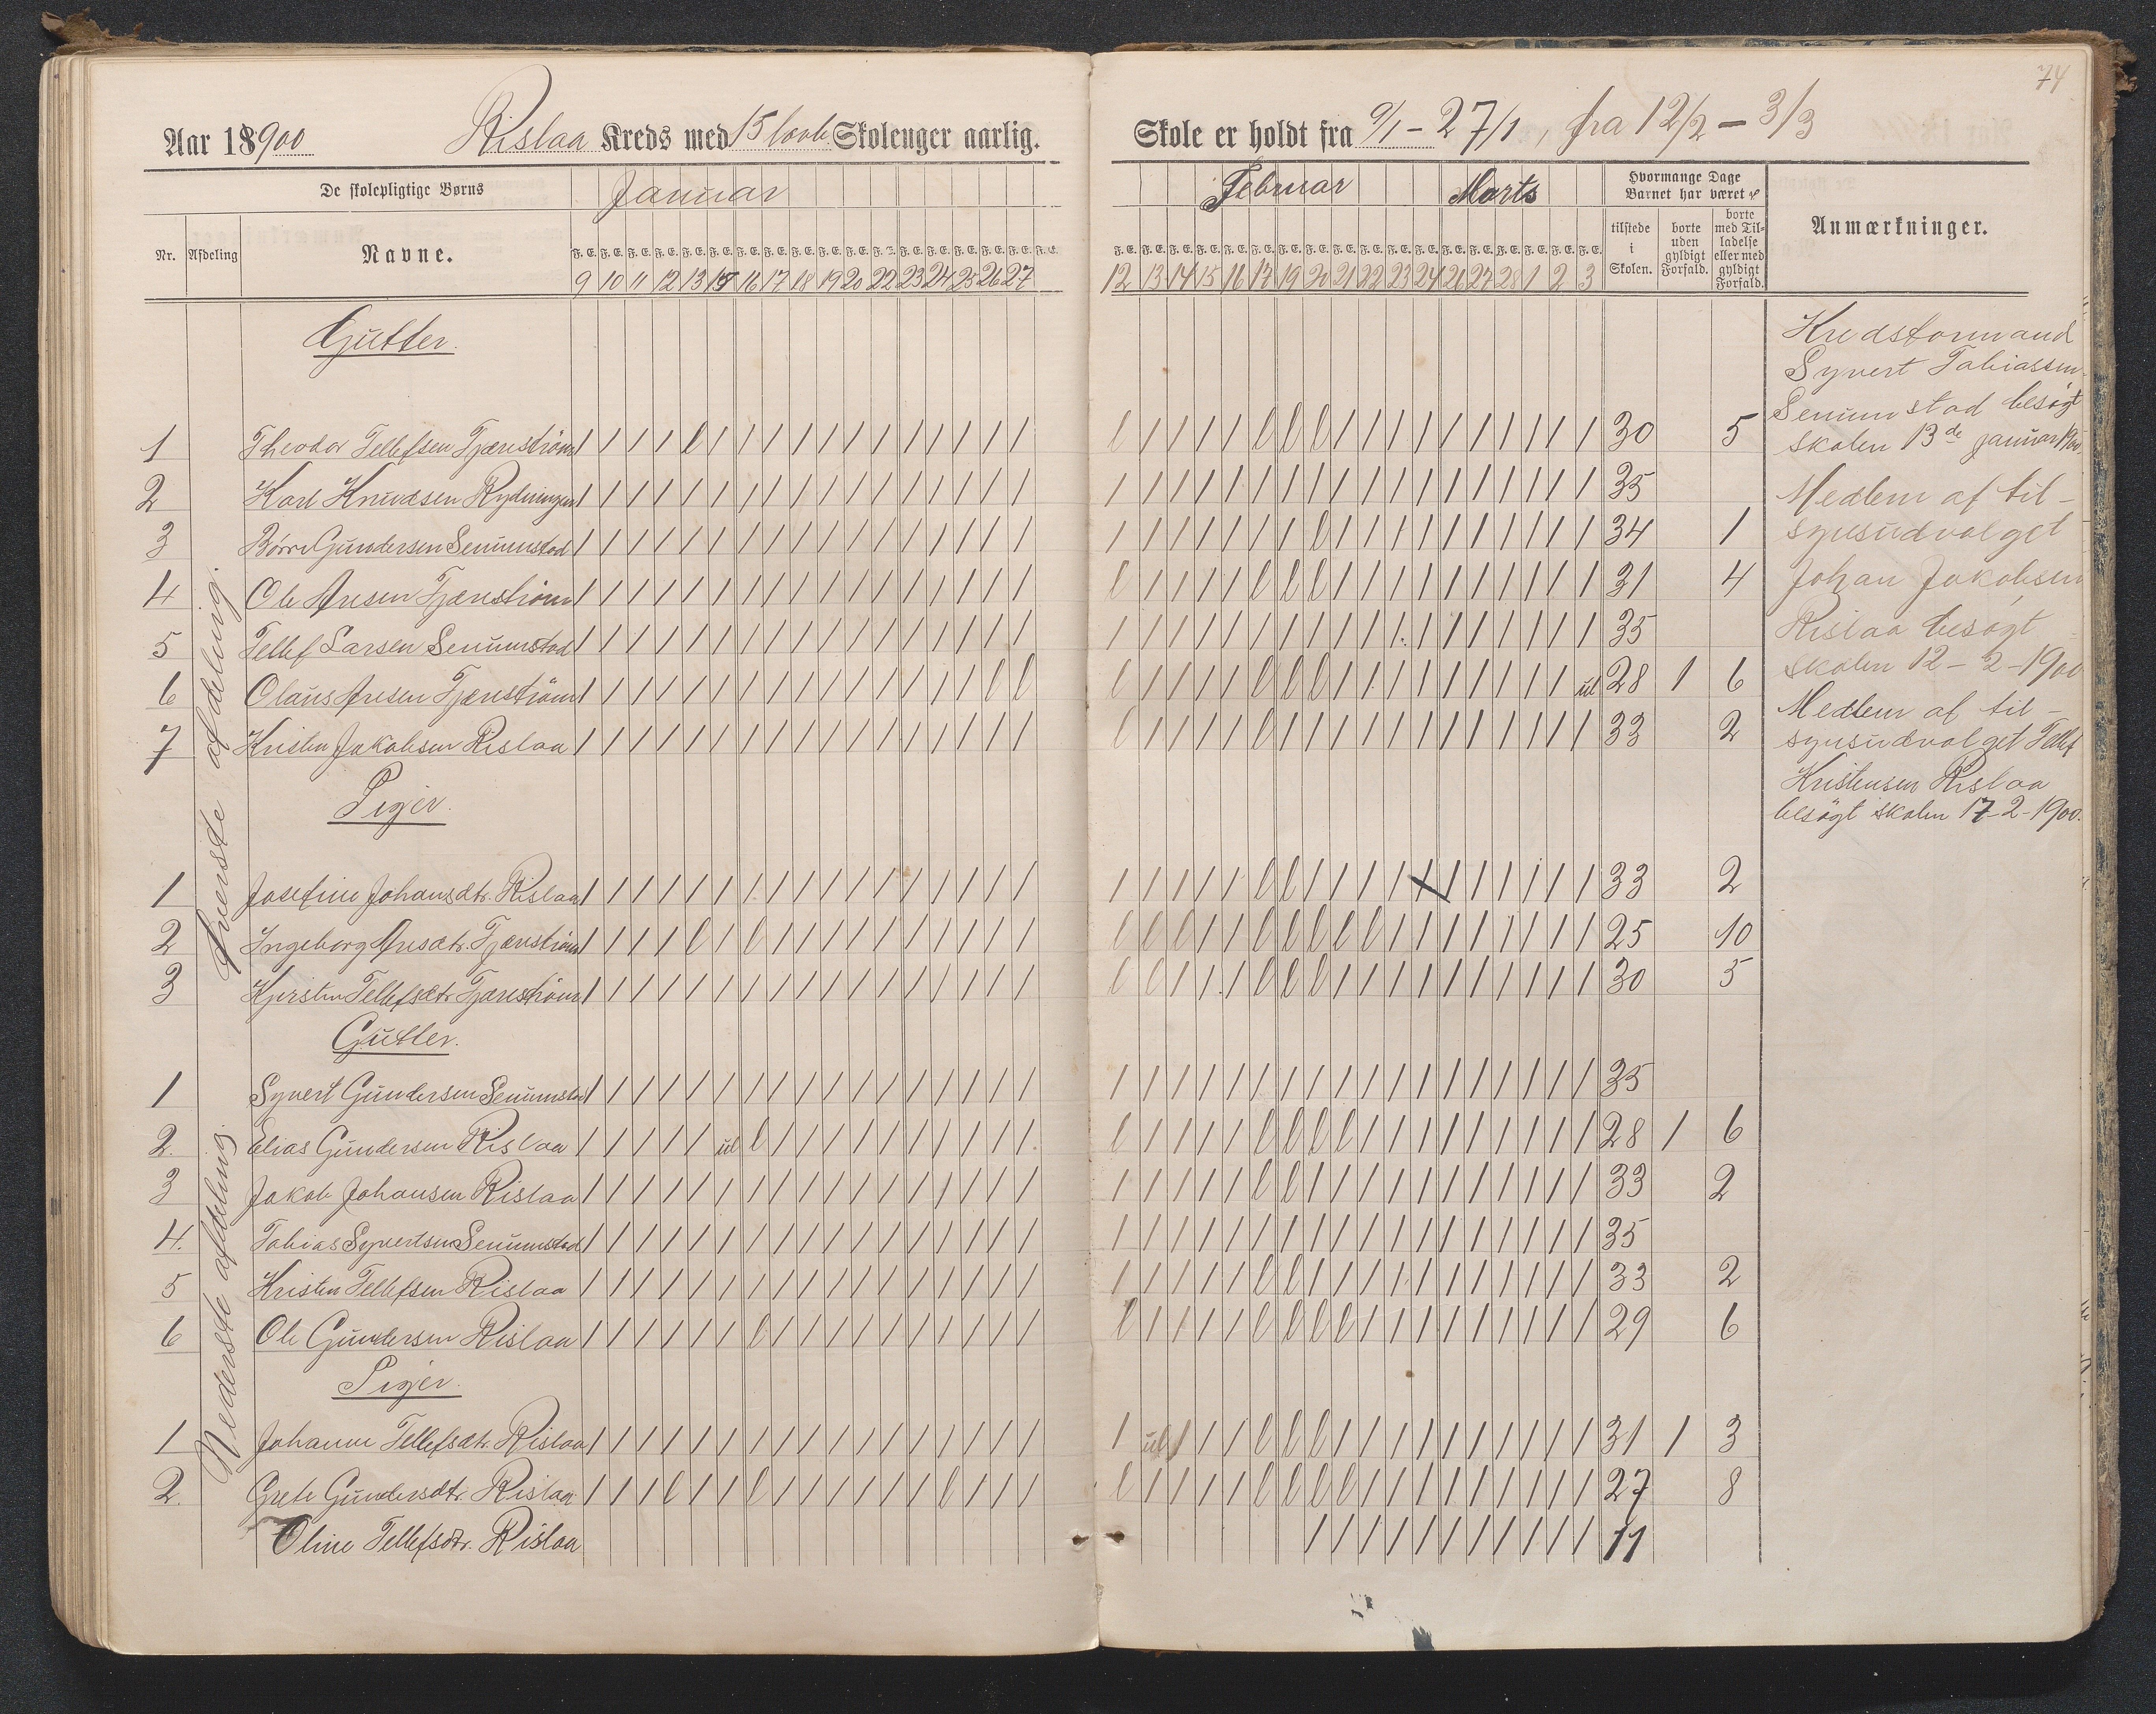 74
Aar 18900 Rislaa Kreds med 15 lovb. Skoleuger aarlig.
Skole er holdt fra 9/1 – 27/1, fra 12/2 – 3/3
De skolepligtige Børns Januar
Februar Marts Hvormange Dage Barnet har været
Nr. Afdeling Navne.
F. E. F. E. F. E. F. E. F. E. F. E. F. E. F. E. F. E. F. E. F. E. F. E. F. E. F. E. F. E. F. E. F. E.
9 10 11 12 13 15 16 17 18 19 20 22 23 24 25 26 27
F. E. F. E. F. E. F. E. F. E. F. E. F. E. F. E. F. E. F. E. F. E. F. E. F. E. F. E. F. E. F. E. F. E. F. E.
12 13 14 15 16 17 19 20 21 22 23 24 26 27 28 1 2 3
tilstede i Skolen.
borte uden gyldigt Forfald.
borte med Tilladelse eller med gyldigt Forfald.
Anmærkninger.
Øverste afdeling.
Gutter.
1 Theodor Tellefsen Tjærnström 30 5
2 Karl Knudsen Rydningen 35
3 Börre Gundersen Senumstad 34 1
4 Ole Aresen Tjærnström 31 4
5 Tellef Larsen Senumstad 35
6 Olaus Aresen Tjærnström ul 28 1 6
7 Kristen Jakobsen Rislaa 33 2
Piger.
1 Josefine Johansdtr. Rislaa 33 2
2 Ingeborg Aresdtr. Tjærnström 25 10
3 Kjersten Tellefsdtr. Tjærnström 30 5
Nederste afdeling.
Gutter.
1 Syvert Gundersen Senumstad 35
2. Elias Gundersen Rislaa ul 28 1 6
3 Jakob Johansen Rislaa 33 2
4. Tobias Syvertsen Senumstad 35
5 Kristen Tellefsen Rislaa 33 2
6 Ole Gundersen Rislaa 29 6
Piger.
1 Johanne Tellefsdtr. Rislaa ul 31 1 3
2. Grete Gundersdtr. Rislaa 27 8
Oline Tellefsdtr. Rislaa 11
Kredsformand
Syvert Tobiassen
Senumstad besögt
skolen 13de januar 1900.
Medlem af til-
synsudvalget
Johan Jakobsen
Rislaa besögt
skolen 12-2-1900
Medlem af til-
synsudvalget Tellef
Kristensen Rislaa
besögt skolen 17-2-1900.